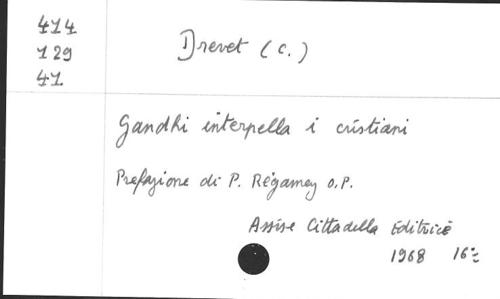 414
129
41
Drevet (C.)
Gandhi interpella i cristiani
Prefazione di P. Régamey O.P.
Assise Cittadella Editrice
1968 16°